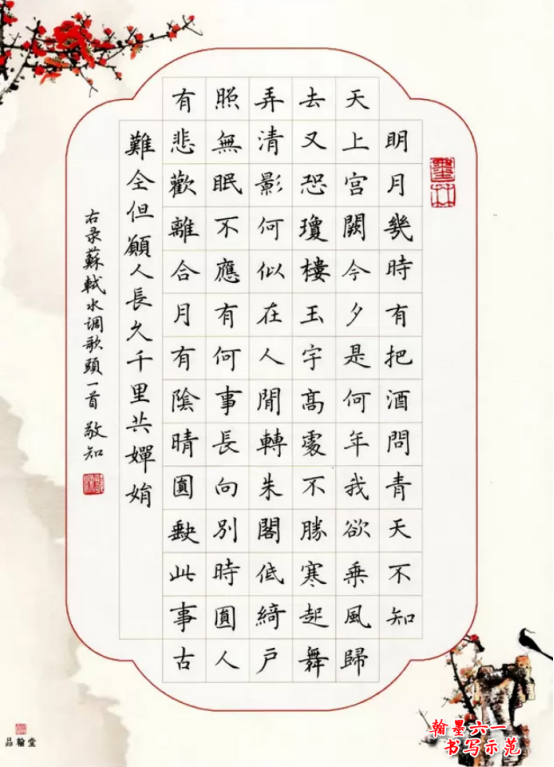 明月幾時有把酒問青天不知
天上宮闕今夕是何年我欲乘風歸
去又恐瓊樓玉宇髙處不勝寒起舞
弄清影何似在人間轉朱閣低綺戶
照無眠不應有何事長向別時圓人
有悲歡離合月有陰晴圓缺此事古
難全但願人長久千里共嬋娟
右录蘇軾水调歌頭一首 敬知
品翰堂
翰墨六一
书写示范